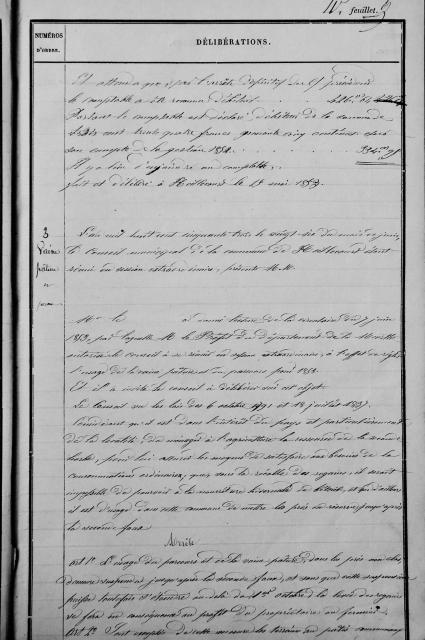 feuillet.
NUMÉROS
D'ORDRE.
DÉLIBÉRATIONS.
Et attendu que par l'arrêté définitif du
le comptable a été reconnu débiteur
Partant le comptable est déclaré débiteur de la somme de
trois cent trente quatre francs, cinq centimes
son compte de la gestion 1852.
Il y a lieu d'enjoindre au comptable,
fait et délibéré à le mai 1853.
3
Vaine
pâture
et
L'an mil huit cent cinquante trois, le vingt six du mois de juin,
le Conseil municipal de la commune de étant
réuni en session extraordinaire, présents M.M.
Mr le a donné lecture de la circulaire du 7 juin
1853, par laquelle M. le Préfet du département de la Moselle
autorise le conseil à se réunir en session extraordinaire, à l'effet de régler
l'usage de la vaine pâture et du parcours pour 1853.
Et il a invité le conseil à délibérer sur cet objet.
Le Conseil vu les lois des 6 octobre 1791 et 18 juillet 1837.
Considérant qu'il est dans l'intérêt du pays et particulièrement
de la localité, de ménager à l'agriculture la ressource de la seconde
herbe, pour lui assurer les moyens de satisfaire aux besoins de la
consommation ordinaire, que, sans la récolte des regains, il serait
impossible de pourvoir à la nourriture hivernale du bétail, et que d'ailleurs
il est d'usage dans cette commune de mettre les prés en réserve jusqu'après
la seconde faux.
Arrête
Art 1er L'usage du parcours et de la vaine pâture, dans les prés non clos,
demeure suspendu jusqu'après la seconde faux, et sans que cette suspension
puisse toutefois s'étendre au delà du 1er octobre, la levée des regains
se fera en conséquence au profit du propriétaire ou fermier.
Art 2e Sont exceptés de cette mesure les terrains en